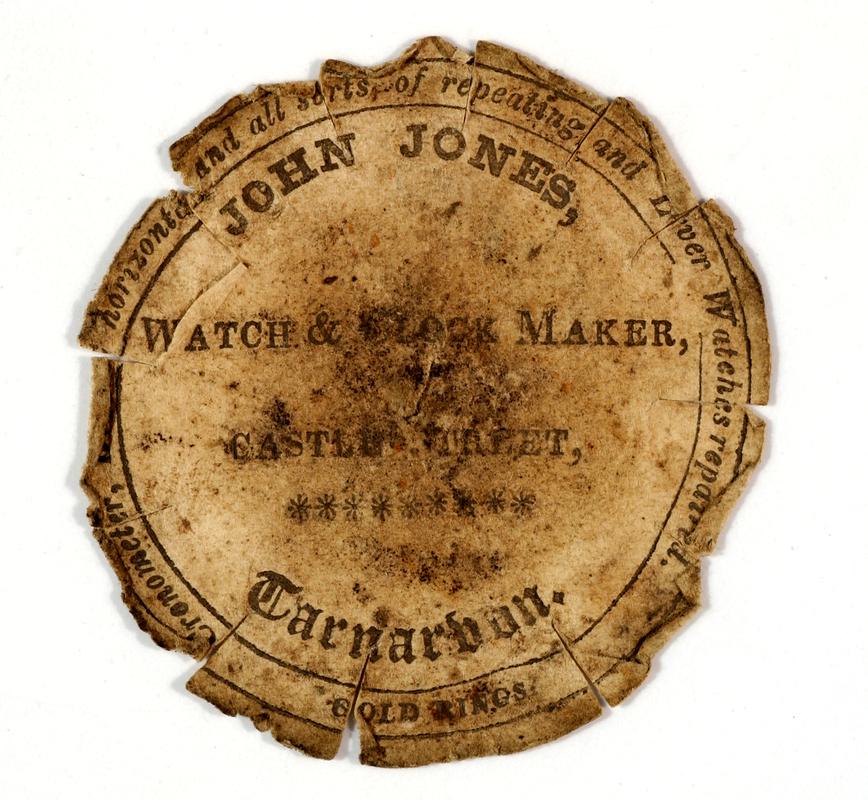 Cronometer, horizontal and all sorts, of repeating and Lever Watches repaired.
JOHN JONES,
WATCH & CLOCK MAKER,
CASTLE STREET,
*********
Carnarvon.
GOLD RINGS